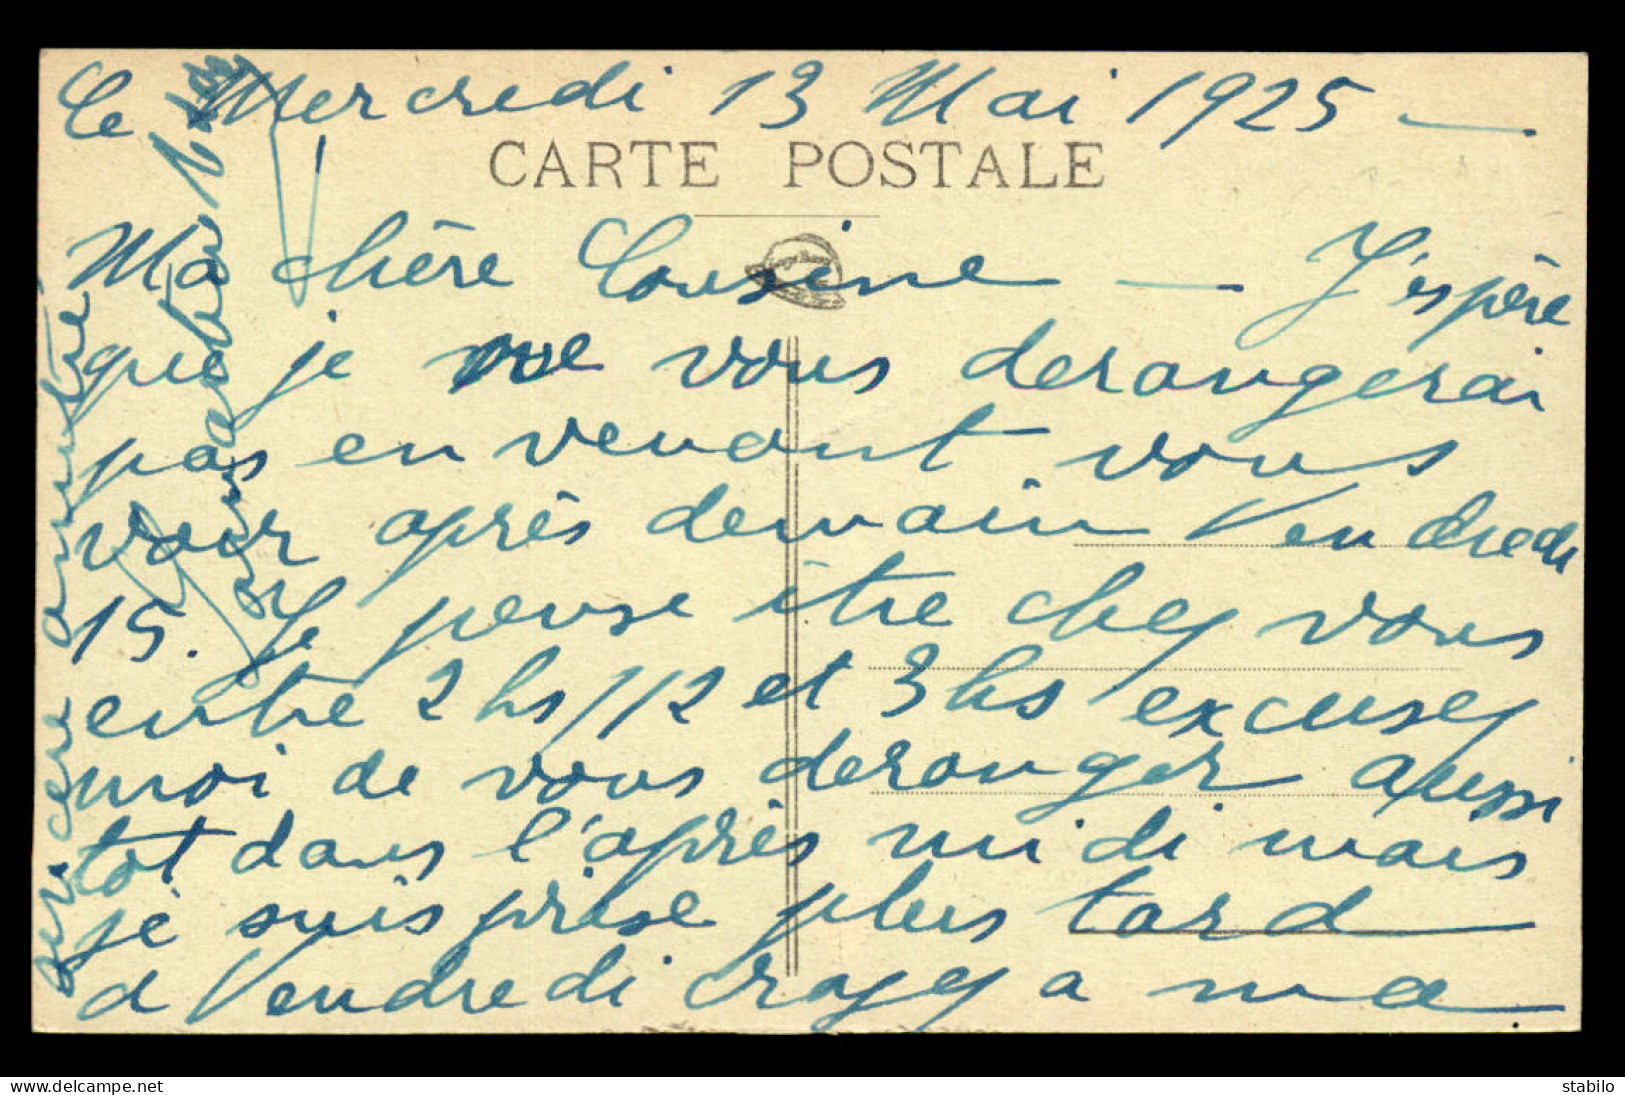 Le Mercredi 13 Mai 1925 —
CARTE POSTALE
Ma chère Cousine — J'espère
que je ne vous derangerai
pas en venant vous
voir après demain Vendredi
15. Je pense être chez vous
entre 2 hs 1/2 et 3 hs excusez
moi de vous deranger aussi
tot dans l'après midi mais
je suis prise plus tard
a Vendredi croyez a ma
sincere amitié
Delcampe.net
stabilo